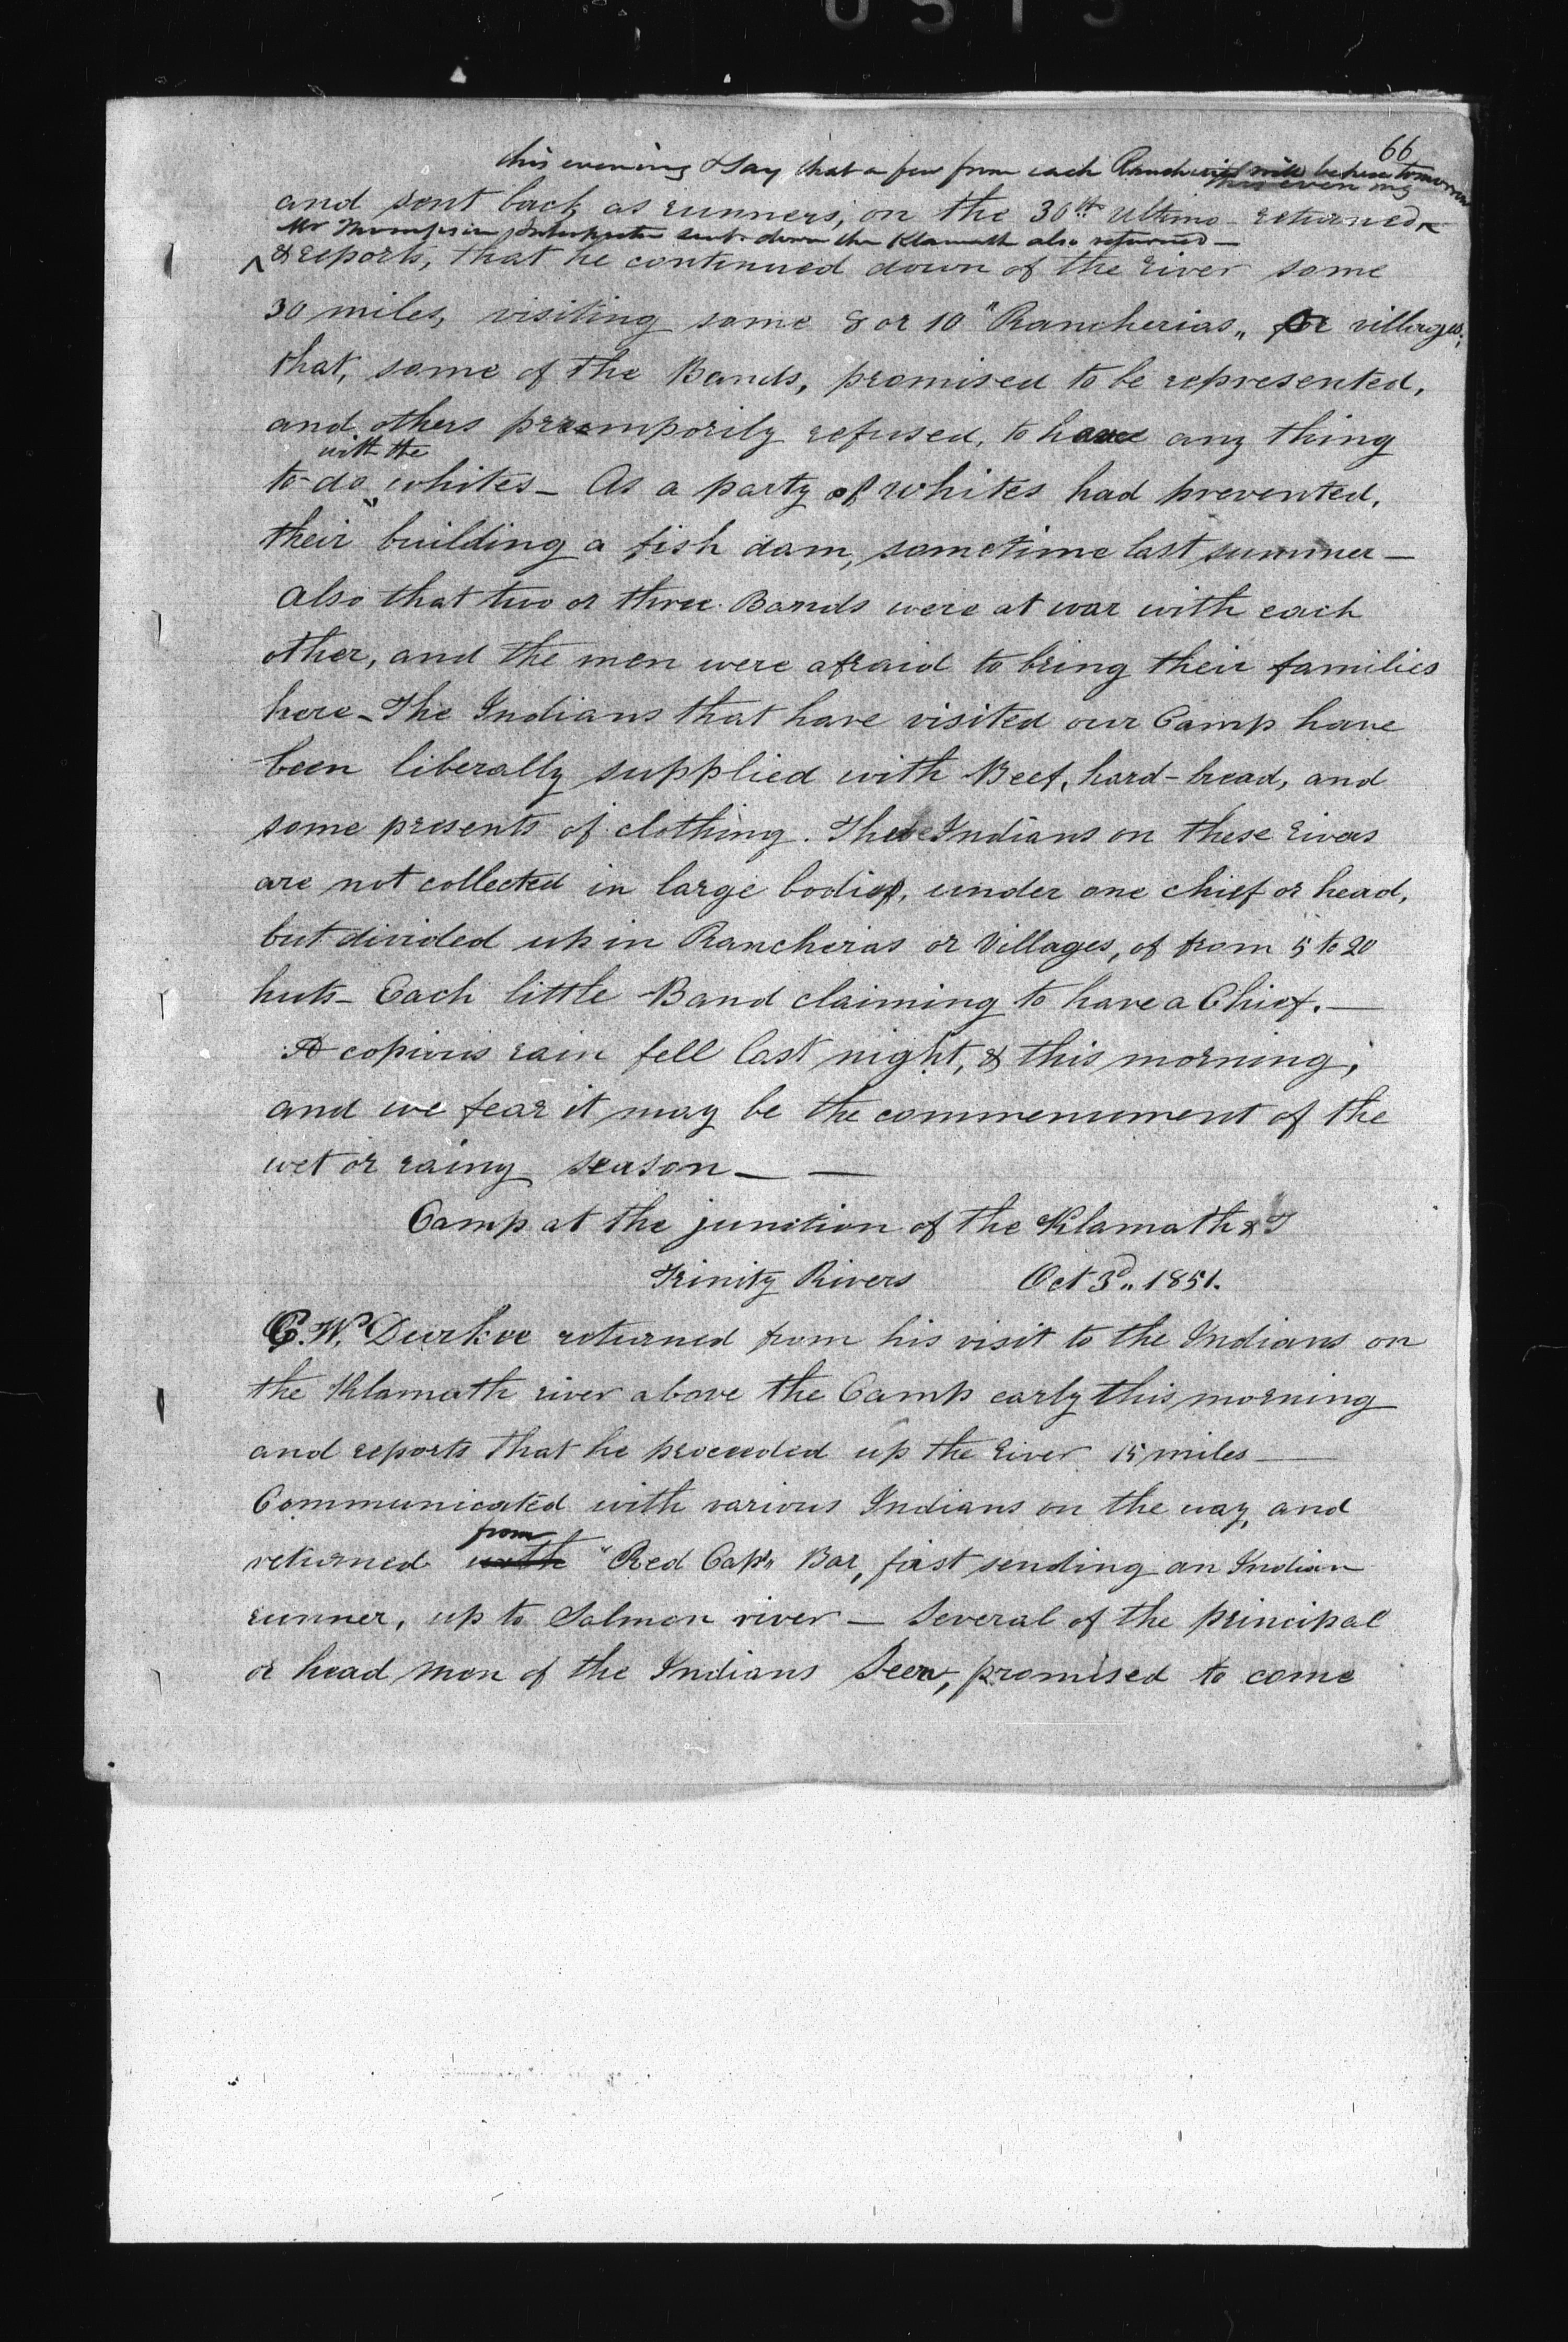 66
this evening & say that a few from each Rancheria will be here tomorrow
this evening
and sent back as runners, on the 30th Ultimo returned
Mr Thompson Interpreter sent down the Klamath also returned—
& reports, that he continued down of the river some
30 miles, visiting some 8 or 10 "Rancherias„ or villages;
that, some of the Bands, promised to be represented,
and others preemporily refused, to have any thing
with the
to do whites— As a party of whites had prevented,
their building a fish dam, sometime last summer—
also that two or three Bands were at war with each
other, and the men were afraid to bring their families
here— The Indians that have visited our Camp have
been liberally supplied with Beef, hard-bread, and
some presents of clothing. The Indians on these rivers
are not collected in large bodies, under one chief or head,
but divided up in Rancherias or Villages, of from 5 to 20
huts— Each little Band claiming to have a Chief.—
A copious rain fell last night, & this morning,
and we fear it may be the commencement of the
wet or rainy season— —
Camp at the junction of the Klamath & T
Trinity Rivers Oct 3d„ 1851.
C. W. Durkee returned from his visit to the Indians on
the Klamath river above the Camp early this morning
and reports that he proceeded up the river 15 miles—
Communicated with various Indians on the way, and
from
returned with "Red Cap's„ Bar, first sending an Indian
runner, up to Salmon river— Several of the principal
or head men of the Indians Seen, promised to come